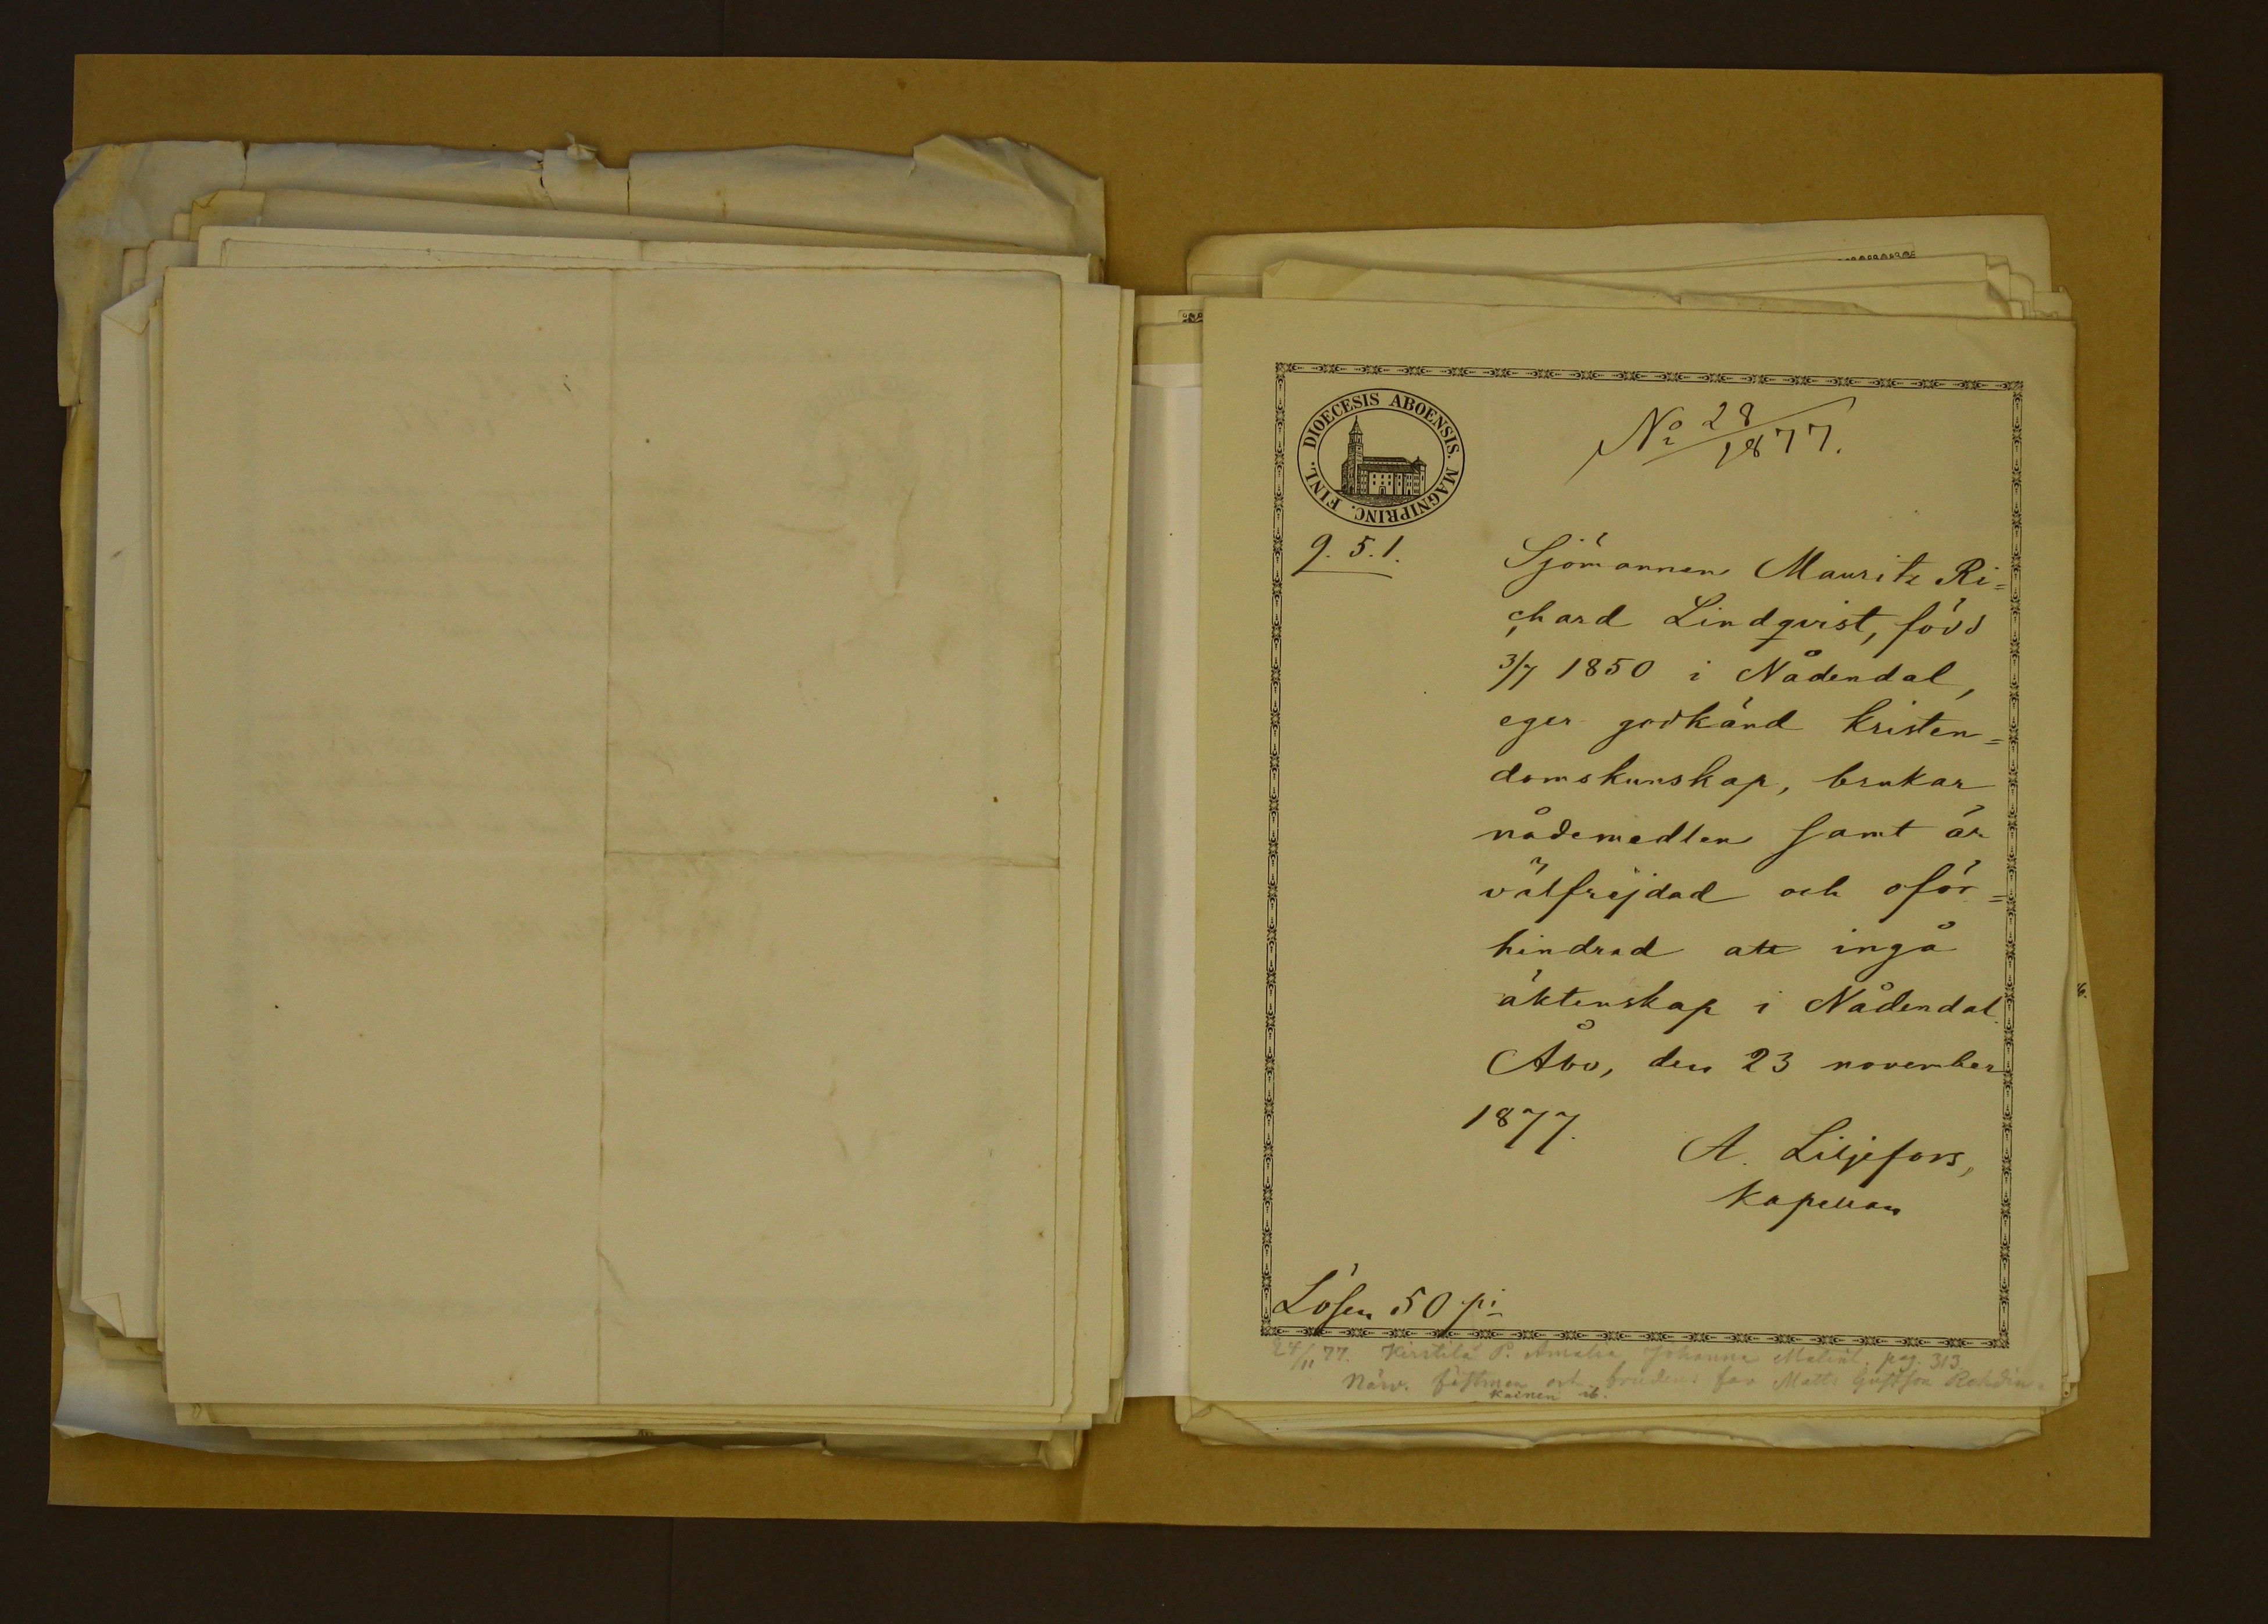 DIOECESIS ABOENSIS. MAGNIPRINC. FINL.
No 28/1877.
9.5.1.
Sjömannen Mauritz Ri=
chard Lindqvist, född
3/7 1850 i Nådendal,
eger godkänd kristen=
domskunskap, brukar
nådemedlen samt är
välfrejdad och oför=
hindrad att ingå
äktenskap i Nådendal.
Åbo, den 23 november
1877.
A. Liljefors,
Kapellan
Lösen 50 pi
24/11 77. Kirstilä P. Amalia Johanna Matint. pag. 313
Närv. fästman och brudens far Matts Gustfson
kainen ib.